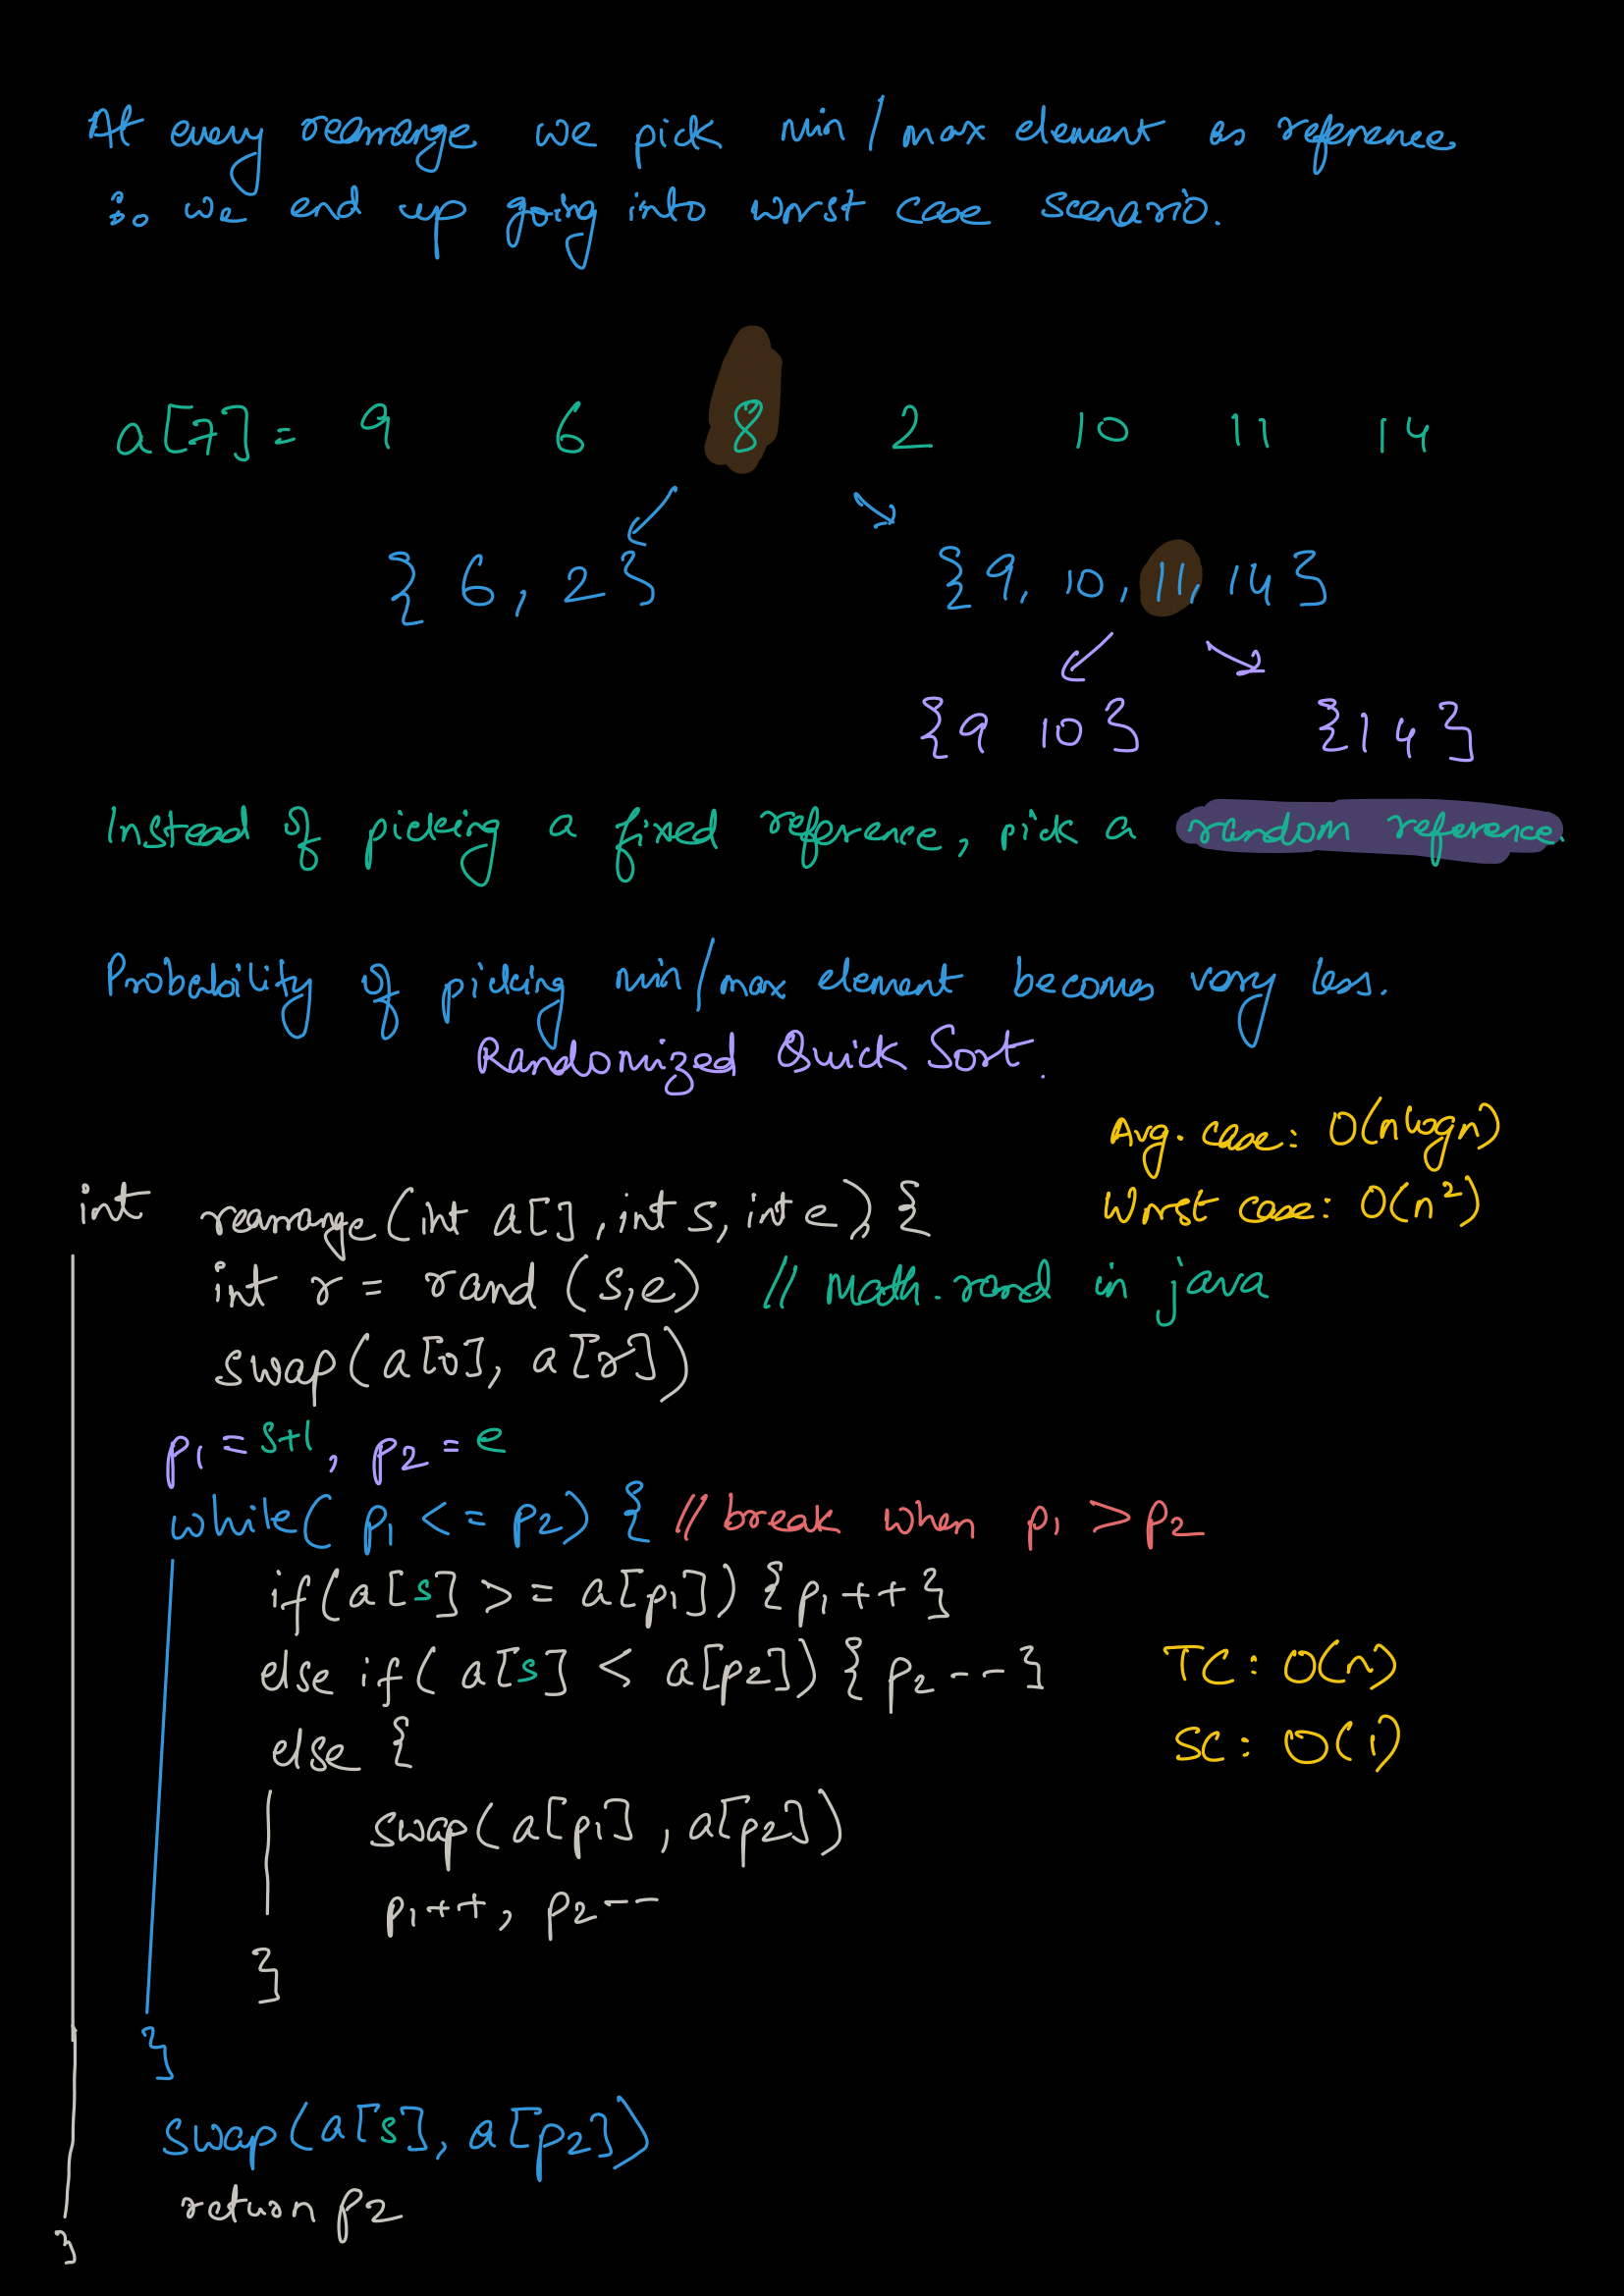 At every rearrange we pick min/max element as reference
∴ we end up going into worst case scenario.
a[7] = 9 6 8 2 10 11 14
{ 6, 2 } { 9, 10, 11, 14 }
{ 9 10 } { 14 }
Instead of picking a fixed reference, pick a random reference.
Probability of picking min/max element becomes very less.
Randomized Quick Sort.
Avg. case: O(n log n)
int rearrange(int a[], int s, int e) {
Worst case: O(n²)
int r = rand (s, e) // Math.rand in java
swap(a[0], a[r])
p1 = s+1, p2 = e
while( p1 <= p2) { // break when p1 > p2
if(a[s] >= a[p1]) { p1++ }
else if( a[s] < a[p2]) { p2-- } TC: O(n)
else { SC: O(1)
swap(a[p1], a[p2])
p1++, p2--
}
}
swap(a[s], a[p2])
return p2
}